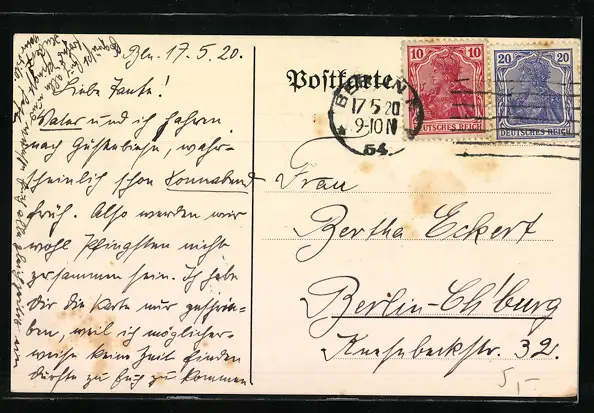 Bln. 17.5.20.
Liebe Tante!
Vater und ich fahren
nach Güstenbiese, wahr-
scheinlich schon Sonnabend
früh. Also werden wir
wohl Pfingsten nicht
zusammen sein. Ich habe
Dir die Karte nur geschrie-
ben, weil ich möglicher-
weise keine Zeit finden
dürfte zu Euch zu kommen
Postkarte
BERLIN
17.5.20
9-10 N
* 54.
10 10
DEUTSCHES REICH
20 20
DEUTSCHES REICH
Frau
Bertha Eckert
Berlin-Ch'burg
Knesebeckstr. 32.
5,-